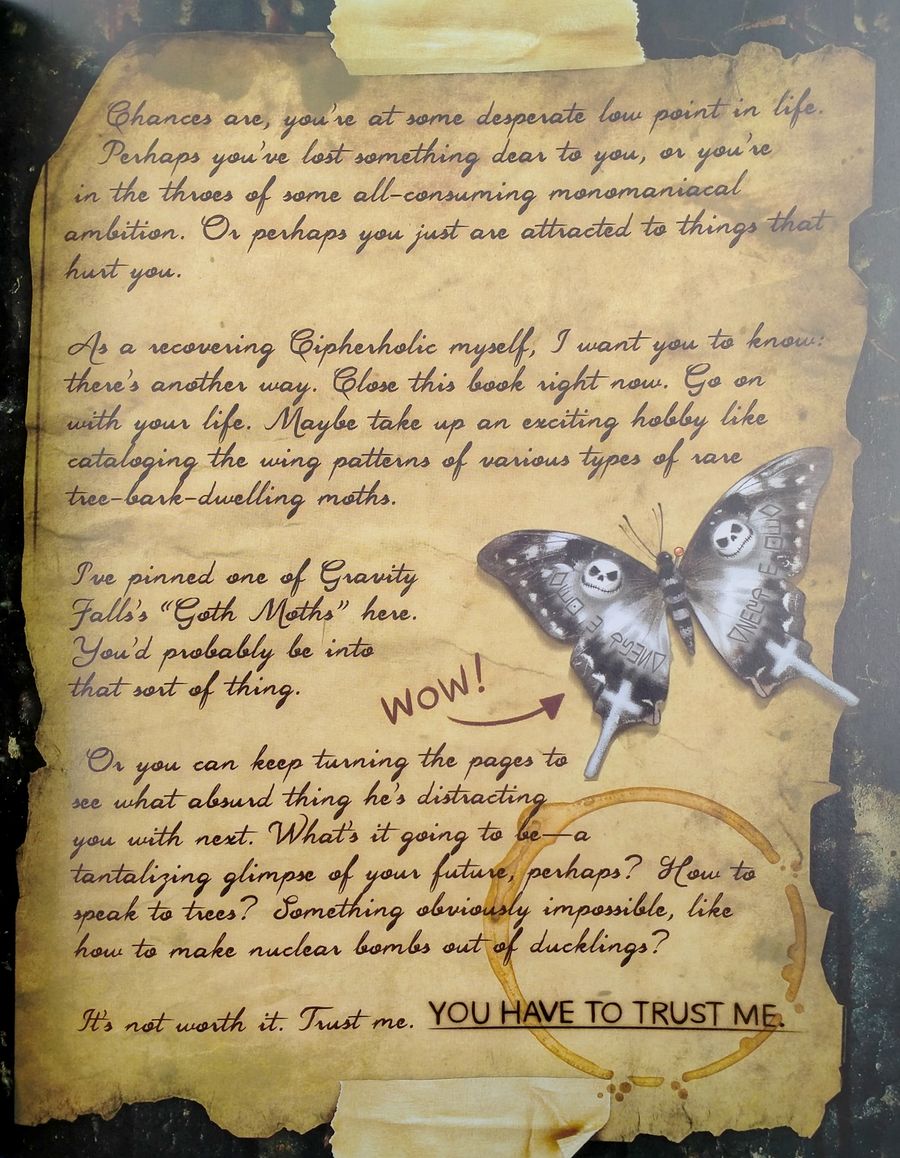 Chances are, you're at some desperate low point in life.
Perhaps you've lost something dear to you, or you're
in the throes of some all-consuming monomaniacal
ambition. Or perhaps you just are attracted to things that
hurt you.
As a recovering Cipherholic myself, I want you to know:
there's another way. Close this book right now. Go on
with your life. Maybe take up an exciting hobby like
cataloging the wing patterns of various types of rare
tree-bark-dwelling moths.
I've pinned one of Gravity
Falls's “Goth Moths” here.
You'd probably be into
that sort of thing.
WOW!
Or you can keep turning the pages to
see what absurd thing he's distracting
you with next. What's it going to be—a
tantalizing glimpse of your future, perhaps? How to
speak to trees? Something obviously impossible, like
how to make nuclear bombs out of ducklings?
It's not worth it. Trust me. YOU HAVE TO TRUST ME.